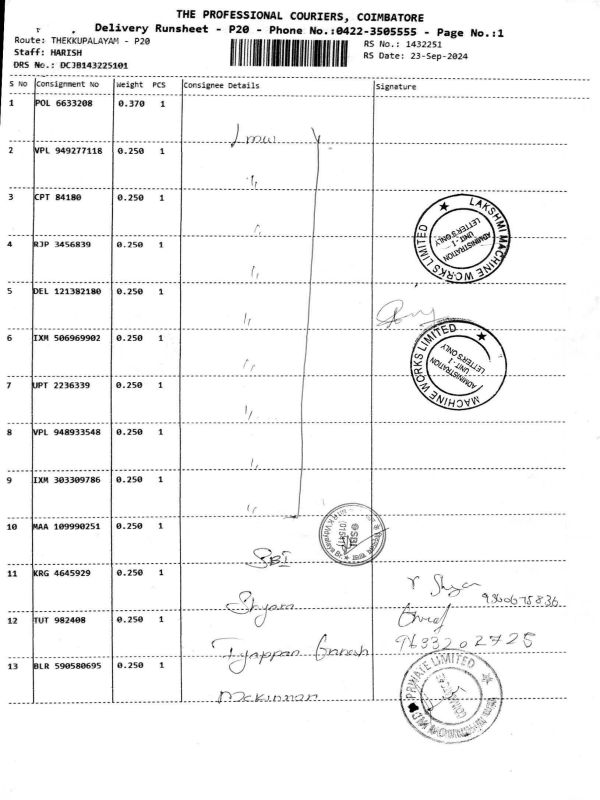 THE PROFESSIONAL COURIERS, COIMBATORE
Delivery Runsheet - P20 - Phone No.:0422-3505555 - Page No.:1
Route: THEKKUPALAYAM - P20
RS No.: 1432251
Staff: HARISH
RS Date: 23-Sep-2024
DRS No.: DCJB143225101
S No Consignment No Weight PCS Consignee Details Signature
1 POL 6633208 0.370 1
Lmw
2 VPL 949277118 0.250 1
"
3 CPT 84180 0.250 1
"
LAKSHMI MACHINE WORKS LIMITED
ADMINISTRATION
UNIT-1
LETTER'S ONLY
4 RJP 3456839 0.250 1
"
5 DEL 121382180 0.250 1
"
6 IXM 506969902 0.250 1
"
MACHINE WORKS LIMITED
ADMINISTRATION
UNIT-1
LETTER'S ONLY
7 UPT 2236339 0.250 1
"
8 VPL 948933548 0.250 1
"
9 IXM 303309786 0.250 1
"
10 MAA 109990251 0.250 1
SBI
SBI
11 KRG 4645929 0.250 1
Shyam
9360675836
12 TUT 982408 0.250 1
Iyappan Ganesh
9633202725
13 BLR 590580695 0.250 1
Mckinnon
PRIVATE LIMITED